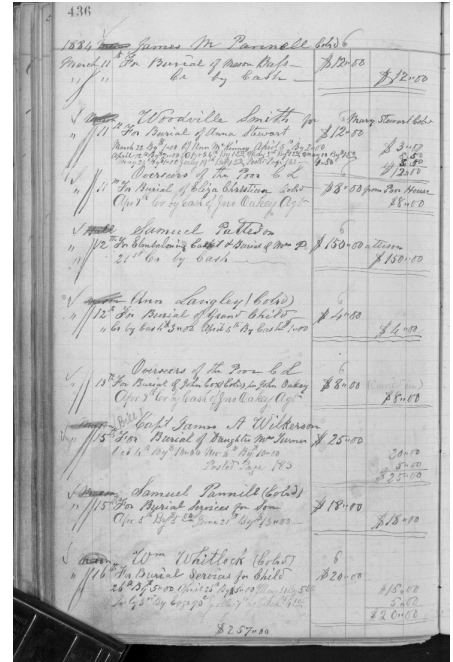 436
1884 James M Pannell Cold 6
March 11th For Burial of Mason Bass $12.00
" " Cr by Cash $12.00
Woodville Smith for Mary Stewart Cold
" 11th For Burial of Anna Stewart $12.00
$12.00
Overseers of the Poor C L 6
" 11th For Burial of Eliza Christian Cold $8.00 from Poor House
Apr 1st Cr by Cash of Jno Oakey Agt $8.00
Samuel Patteson 6
" 12th For Embalming Casket & Burial of Mrs P. $150.00
" 21st Cr by Cash $150.00
Ann Langley (Cold) 6
" 12th For Burial of Grand Child $4.00
" Cr by Cash $3.00 April 5th By Cash 1.00 $4.00
Overseers of the Poor C L 6
" 13th For Burial of John Cox Cold, for John Oakey $8.00
Apr 3rd Cr by Cash of Jno Oakey Agt $8.00
Bill
Capt James A Wilkerson
" 15th For Burial of Daughter Mrs Turner $25.00
20.00
5.00
Posted Page 183 $25.00
Samuel Pannill (Cold)
" 15th For Burial Services for Son $18.00
Apr 5th By 5.00 June 21st By 13.00 $18.00
Wm Whitlock (Cold) 6
" 16th For Burial Services for Child $20.00
26th By 5.00 April 26th By 5.00
$15.00
5.00
$20.00
$257.00